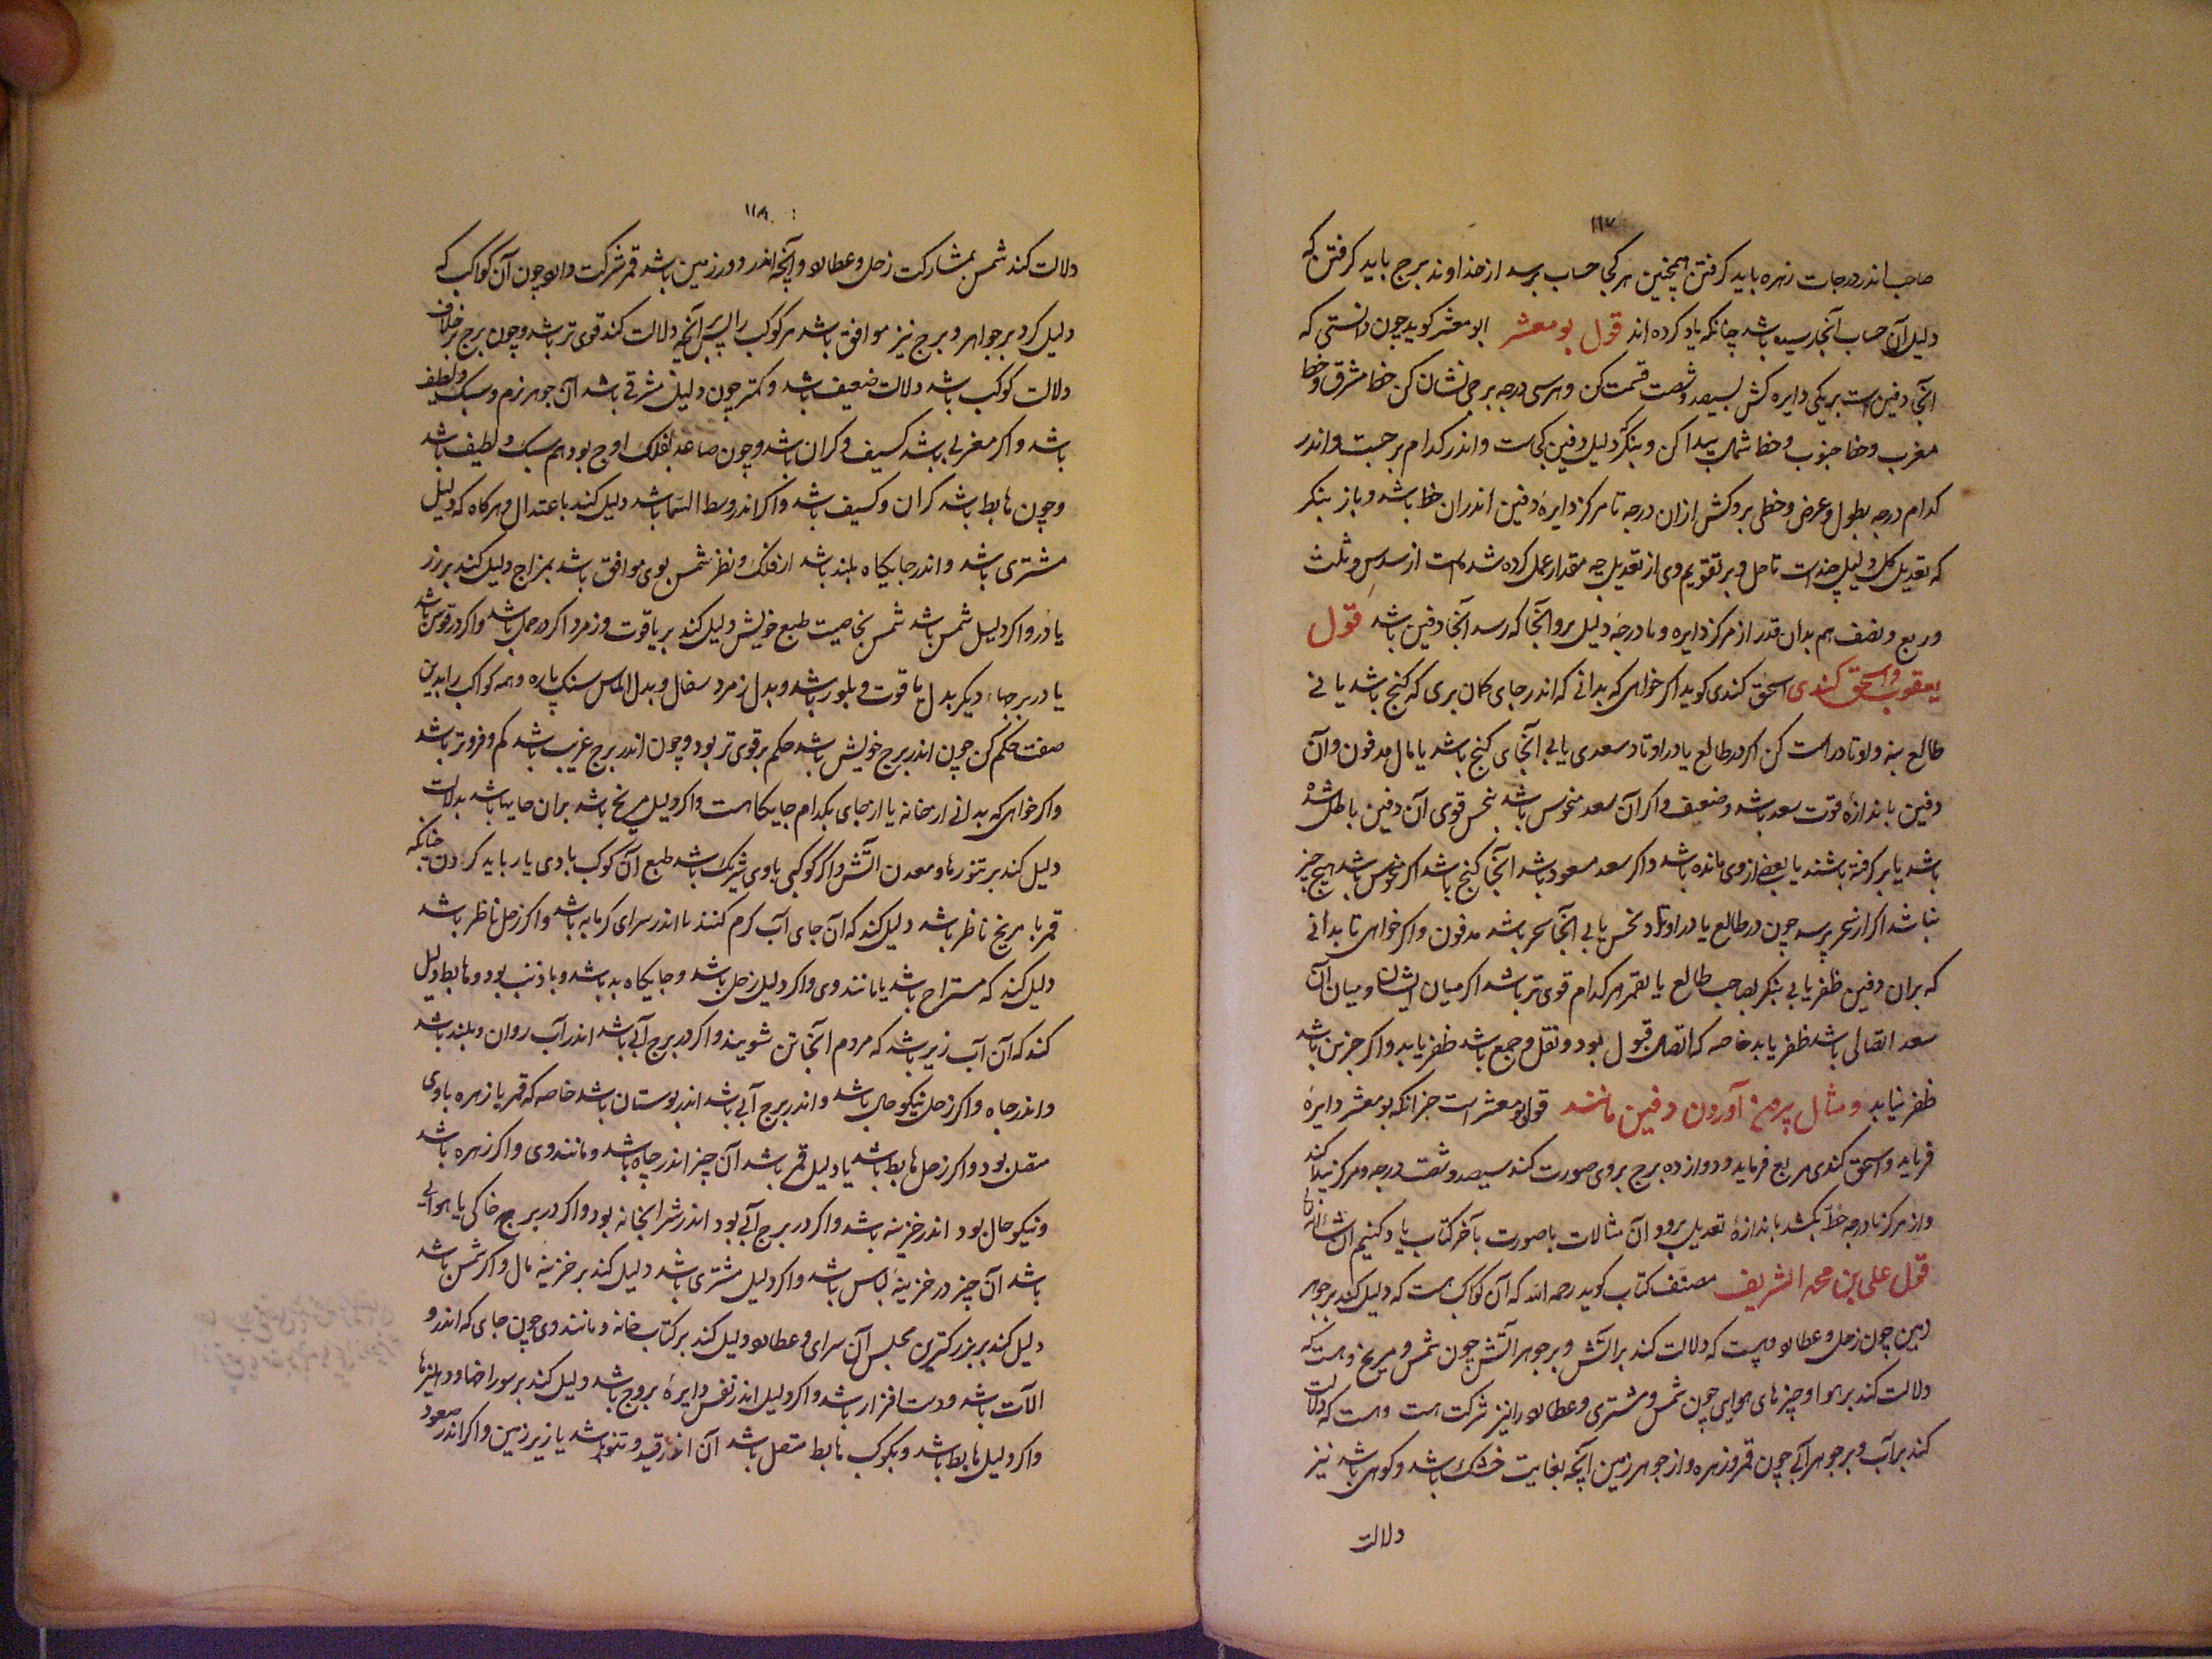 ١١٧
صاحب اندر درجات زهره باید کرفتن همچنین هر کجا حساب برسد از خداوند برج باید کرفتن که
دلیل آن حساب آنجا رسیده باشد چنانکه یاد کرده اند قول بو معشر ابو معشر کوید چون دانستی که
آنجا دفین است بر یکی دایره کش بسیصد و شصت قسمت کن و هر سی درجه برجی نشان کن خط مشرق و خط
مغرب و خط جنوب و خط شمال پیدا کن و بنکر دلیل دفین کی است و اندر کدام برجست و اندر
کدام درجه بطول و عرض و خطی بروکش ازان درجه تا مرکز دایره دفین اندران خط باشد و باز بنکر
که تعدیل کل دلیل چند است تا حل و بر تقویم وی از تعدیل چه مقدار عمل کرده شده است از سدس و ثلث
و ربع و نصف هم بدان قدر از مرکز دایره و تا درجه دلیل برو آنجا که رسد آنجا دفین باشد قول
یعقوب و اسحق کندی اسحق کندی کوید اکر خواهی که بدانی که اندر جای کمان بری که کنج باشد یا نی
طالع بنه و اوتاد راست کن اکر در طالع یا در اوتاد سعدی یابی آنجای کنج باشد یا مال مدفون و آن
دفین باندازه قوت سعد باشد و ضعیف و اکر آن سعد منحوس باشد بنحس قوی آن دفین باطل شده
باشد یا برکرفته باشند یا بعضی از وی مانده باشد و اکر سعد مسعود باشد آنجا کنج باشد اکر منحوس باشد هیچ چیز
نباشد اکر از سحر پرسد چون در طالع یا در اوتاد نحس یابی آنجا سحر باشد مدفون و اکر خواهی تا بدانی
که بران دفین ظفر یابی بنکر بصاحب طالع یا بقمر هر کدام قوی تر باشد اکر میان ایشان و میان آن
سعد اتصالی باشد ظفر یابد خاصه که اتصال قبول بود و نقل و جمع باشد ظفر یابد و اکر جز این باشد
ظفر نیابد و مثال بیرون آوردن دفین مانند قول بو معشر است جز آنکه بو معشر دایره
فرماید و اسحق کندی مربع فرماید و دوازده برج بروی صورت کند سیصد و شصت درجه و مرکز پیدا کند
و از مرکز تا درجه خط بکشد باندازه تعدیل برود آن مثالات با صورت بآخر کتاب یاد کنیم ان شاء الله تعا
قول علی بن محمد الشریف مصنف کتاب کوید رحمه الله که آن کواکب است که دلیل کند بر جوهر
زمین چون زحل و عطارد و هست که دلالت کند بر آتش و بر جوهر آتش چون شمس و مریخ و هست که
دلالت کند بر هوا و چیزهای هوایی چون شمس و مشتری و عطارد را نیز شرکت است و هست که دلالت
کند بر آب و بر جوهر آبی چون قمر و زهره و از جوهر زمین آنچه بغایت خشک باشد و کوهی باشد نیز
دلالت
١١٨
دلالت کند شمس بمشارکت زحل و عطارد و آنچه اندرو در زمین باشد قمر شرکت دارد چون آن کواکب که
دلیل کرد بر جواهر و برج نیز موافق باشد هر کوکب را پس آنچه دلالت کند قوی تر باشد و چون برج برخلاف
دلالت کوکب باشد دلالت ضعیف باشد و کمتر چون دلیل مشرقی باشد آن جوهر نرم و سبک و لطیف
باشد و اکر مغربی باشد کسیف و کران باشد و چون صاعد بفلک اوج بود هم سبک و لطیف باشد
و چون هابط باشد کران و کسیف باشد و اکر اندر وسط السما باشد دلیل کند باعتدال و هر کاه که دلیل
مشتری باشد و اندر جایکاه بلند باشد از فلک و نظر شمس بوی موافق باشد بمزاج دلیل کند بر زر
یا در و اکر دلیل شمس باشد شمس بخاصیت طبع خویش دلیل کند بر یاقوت و زمرد اکر در حمل باشد و اکر در قوس باشد
یا در برجهاء دیکر بدل یاقوت و بلور باشد و بدل زمرد سفال و بدل الماس سنک پاره و همه کواکب را بدین
صفت حکم کن چون اندر برج خویش باشد حکم بر قوی تر بود و چون اندر برج غریب باشد کم و فروتر باشد
و اکر خواهی که بدانی از خانه یا از جای بکدام جایکاست و اکر دلیل مریخ باشد بران جایها باشد بدلالت
دلیل کند بر تنورها و معدن آتش و اکر کوکبی با وی شریک باشد طبع آن کوکب با وی یار باید کردن چنانکه
قمر با مریخ ناظر باشد دلیل کند که آن جای آب کرم کنند یا اندر سرای کرمابه باشد و اکر زحل ناظر باشد
دلیل کند که مستراح باشد یا مانند وی و اکر دلیل زحل باشد و جایکاه بد باشد و با ذنب بود و هابط دلیل
کند که آن آب زیر باشد که مردم آنجا تن شویند و اکر در برج آبی باشد اندر آب روان و بلند باشد
و اندر چاه و اکر زحل نیکو حال باشد و اندر برج آبی باشد اندر بوستان باشد خاصه که قمر یا زهره با وی
متصل بود و اکر زحل هابط باشد یا دلیل قمر باشد آن چیز اندر چاه باشد و مانند وی و اکر زهره باشد
و نیکو حال بود اندر خزینه باشد و اکر در برج آبی بود اندر شرابخانه بود و اکر در برج خاکی یا هوایی
باشد آن چیز در خزینه لباس باشد و اکر دلیل مشتری باشد دلیل کند بر خزینه مال و اکر شمس باشد
دلیل کند بر بزرکترین مجلس آن سرای و عطارد دلیل کند بر کتاب خانه و مانند وی چون جای که اندرو
آلات باشد و دست افزار باشد و اکر دلیل اندر نفس دایره بروج باشد دلیل کند بر سوراخها و دهلیزها
و اکر دلیل هابط باشد و بکوکب هابط متصل باشد آن اندر باشد یا زیر زمین و اکر اندر صعود